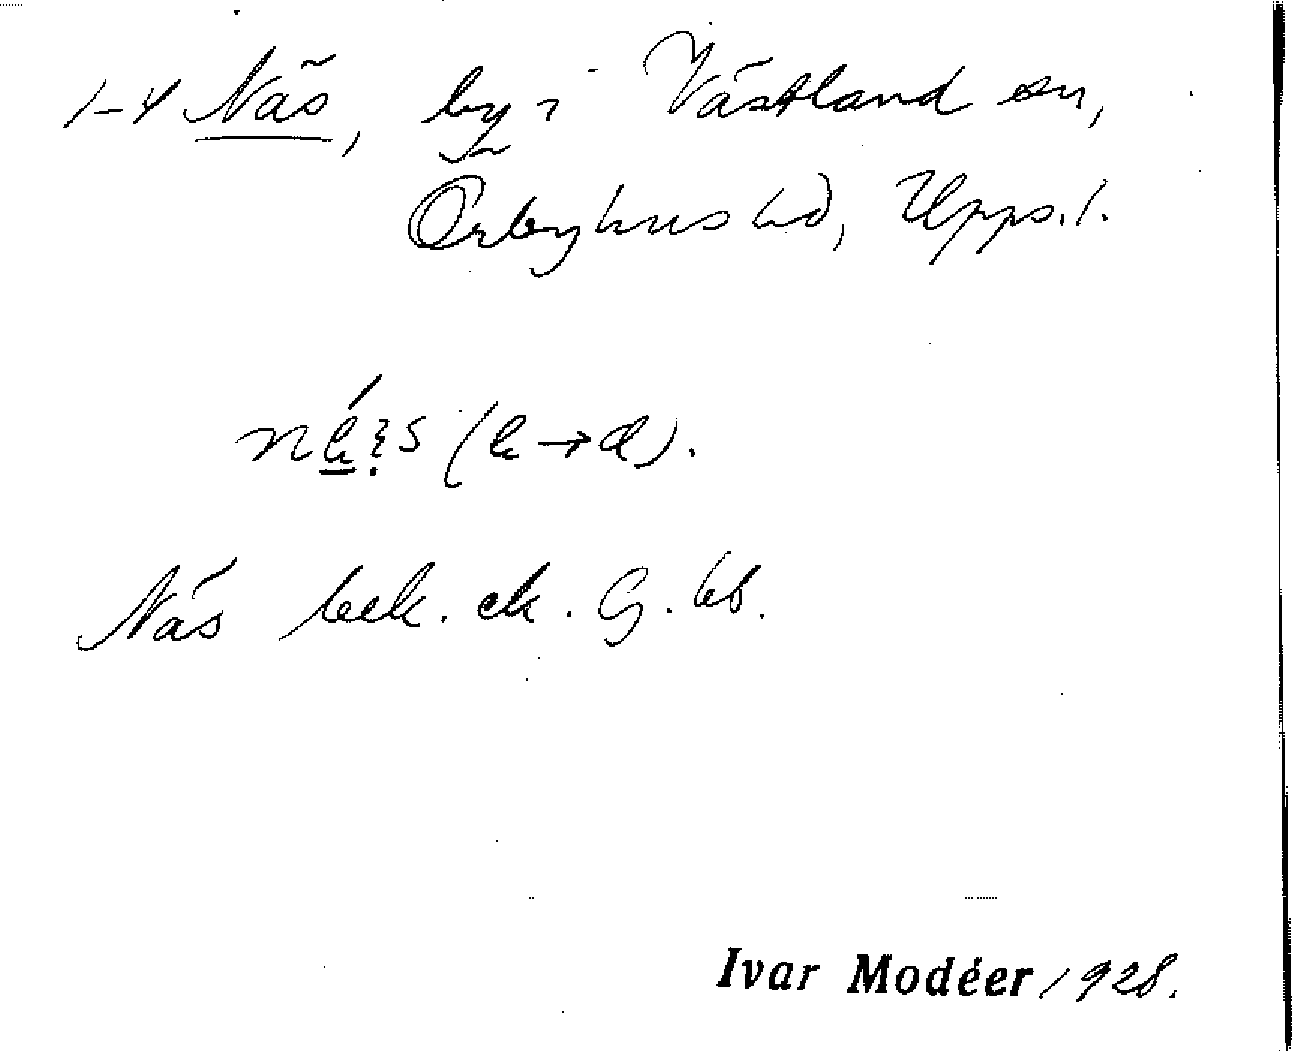 1-4 Näs, by i Västland sn,
Örbyhus hd, Upps. l.
Näs bek. ek. G. kb.
Ivar Modéer 1928.